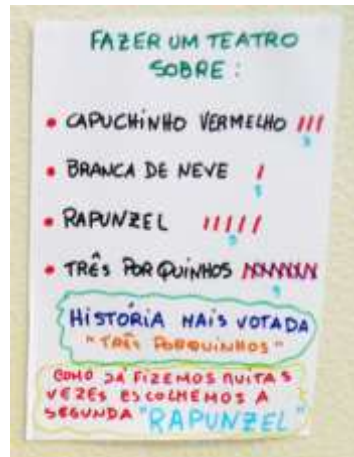 FAZER UM TEATRO
SOBRE:
• CAPUCHINHO VERMELHO III
3
• BRANCA DE NEVE I
1
• RAPUNZEL IIIII
5
• TRÊS PORQUINHOS
HISTÓRIA MAIS VOTADA
"TRÊS PORQUINHOS"
COMO JÁ FIZEMOS MUITAS
VEZES ESCOLHEMOS A
SEGUNDA "RAPUNZEL"